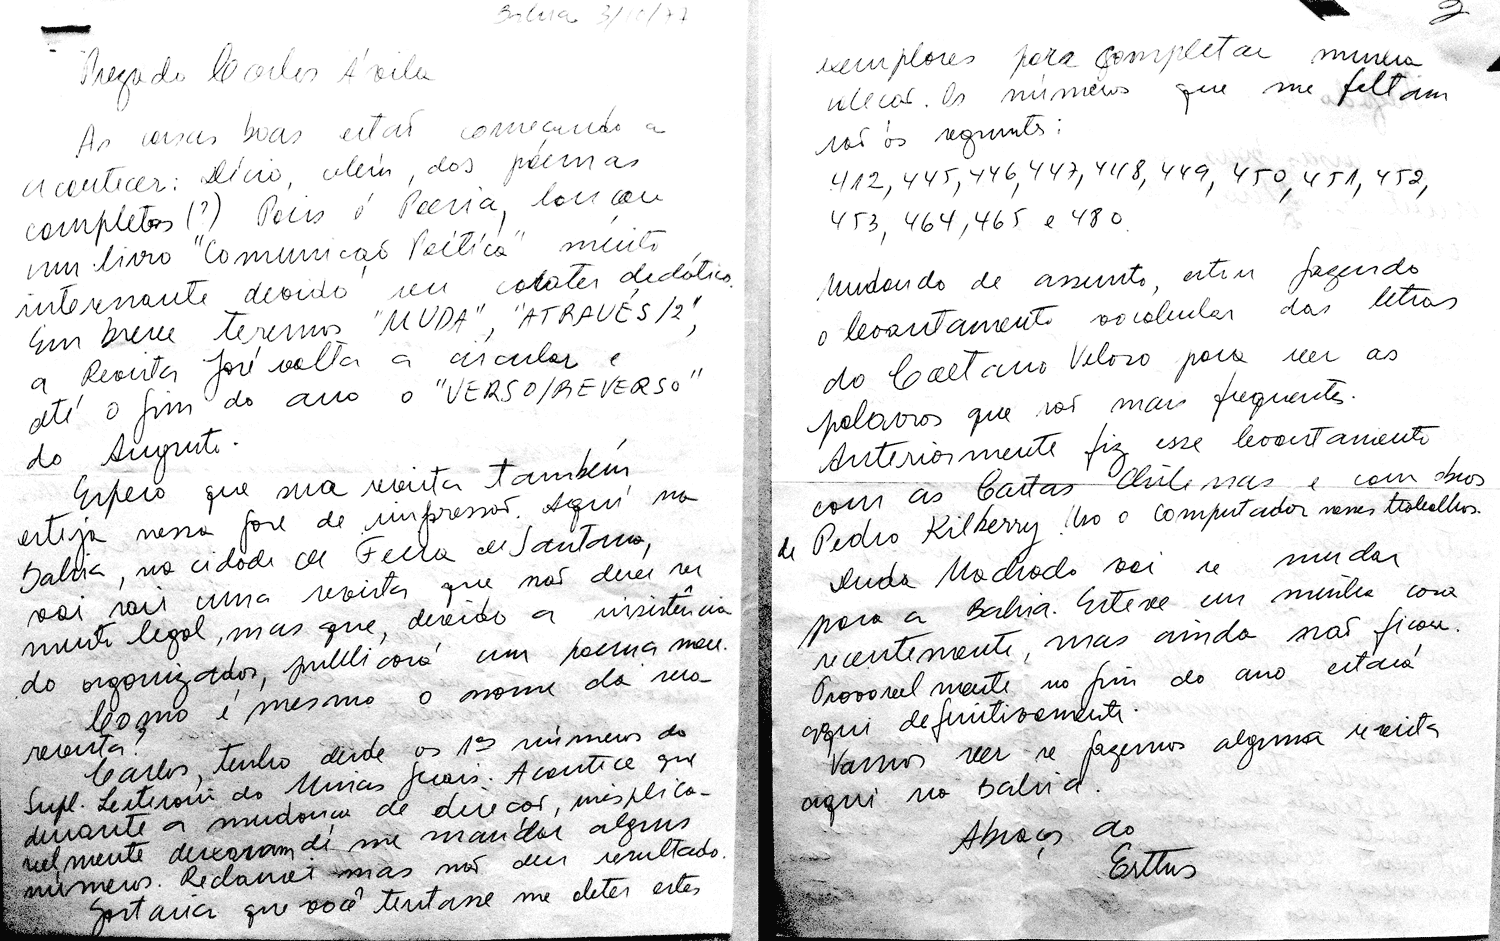 Bahia 3/10/77
Prezado Carlos Ávila
As coisas boas estão começando a
acontecer: Décio, além, dos poemas
completos (?) Pois é Poesia, lançou
um livro "Comunicação Poética" muito
interessante devido seu caráter didático.
Em breve teremos "MUDA", "ATRAVÉS/2",
a Revista José volta a circular e
até o fim do ano o "VERSO/REVERSO"
do Augusto.
Espero que sua revista também
esteja nessa fase de impressão. Aqui na
Bahia, na cidade de Feira de Santana,
vai sair uma revista que não deve ser
muito legal, mas que, devido a insistência
do organizador, publicará um poema meu.
Como é mesmo o nome da sua
revista?
Carlos, tenho desde os 1os números do
Supl. Literário do Minas Gerais. Acontece que
durante a mudança de direção, inexplica-
velmente deixaram de me mandar alguns
números. Reclamei mas não deu resultado.
Gostaria que você tentasse me obter estes
2
exemplares para completar minha
coleção. Os números que me faltam
são os seguintes:
412, 445, 446, 447, 448, 449, 450, 451, 452,
453, 464, 465 e 480.
Mudando de assunto, estou fazendo
o levantamento vocabular das letras
do Caetano Veloso para ver as
palavras que são mais frequentes.
Anteriormente fiz esse levantamento
com as Cartas Chilenas e com obras
de Pedro Kilkerry. Uso o computador nesses trabalhos.
Duda Machado vai se mudar
para a Bahia. Esteve em minha casa
recentemente, mas ainda não ficou.
Provavelmente no fim do ano estará
aqui definitivamente.
Vamos ver se fazemos alguma revista
aqui na Bahia.
Abraços do
Erthos